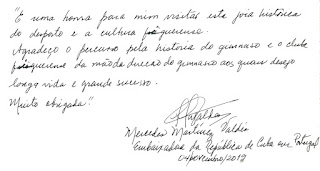 "É uma honra para mim visitar esta joia histórica
do desporto e a cultura figueirense.
Agradeço o percurso pela história do ginasio e o clube
figueirense da mão da direcão do gymnasio aos quais desejo
longa vida e grande sucesso.
Muito obrigada"
Mercedes Martínez Valdés
Embaixadora da República de Cuba em Portugal
04/fevereiro/2019